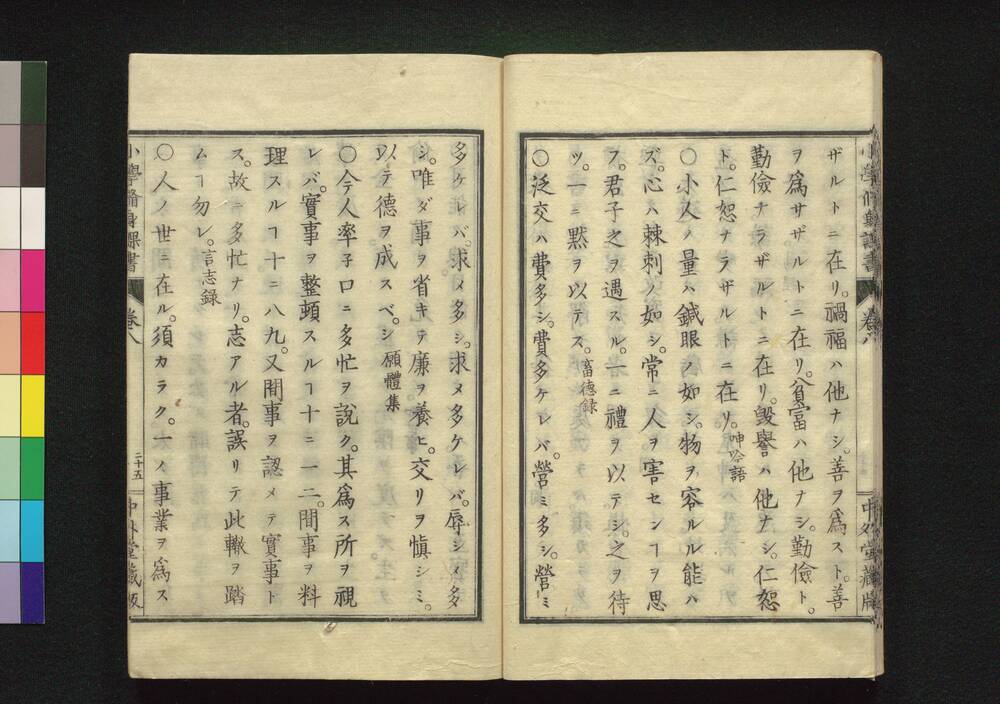 ザルトニ在リ。禍福ハ他ナシ。善ヲ爲スト。善
ヲ爲サザルトニ在リ。貧富ハ他ナシ。勤儉ト。
勤儉ナラザルトニ在リ。毀譽ハ他ナシ。仁恕
ト。仁恕ナラザルトニ在リ。呻吟語
〇小人ノ量ハ鍼眼ノ如シ。物ヲ容ルル能ハ
ズ。心ハ棘刺ノ如シ。常ニ人ヲ害センヿヲ思
フ。君子之ヲ遇スル。一ニ禮ヲ以テシ。之ヲ待
ツ。一ニ黙ヲ以テス。畜德錄
〇泛交ハ費多シ。費多ケレバ。營ミ多シ。營ミ
多ケレバ。求メ多シ。求メ多ケレバ。辱シメ多
シ。唯ダ事ヲ省キテ廉ヲ養ヒ。交リヲ愼シミ。
以テ德ヲ成スベシ。願體集
〇今人率子口ニ多忙ヲ說ク。其爲ス所ヲ視
レバ。實事ヲ整頓スルヿ十ニ一二。間事ヲ料
理スルヿ十ニ八九。又間事ヲ認メテ實事ト
ス。故ニ多忙ナリ。志アル者。誤リテ此轍ヲ踏
ムヿ勿レ。言志錄
〇人ノ世ニ在ル。須カラク。一ノ事業ヲ爲ス
小學脩身課書 卷八 三十五 中外堂藏版